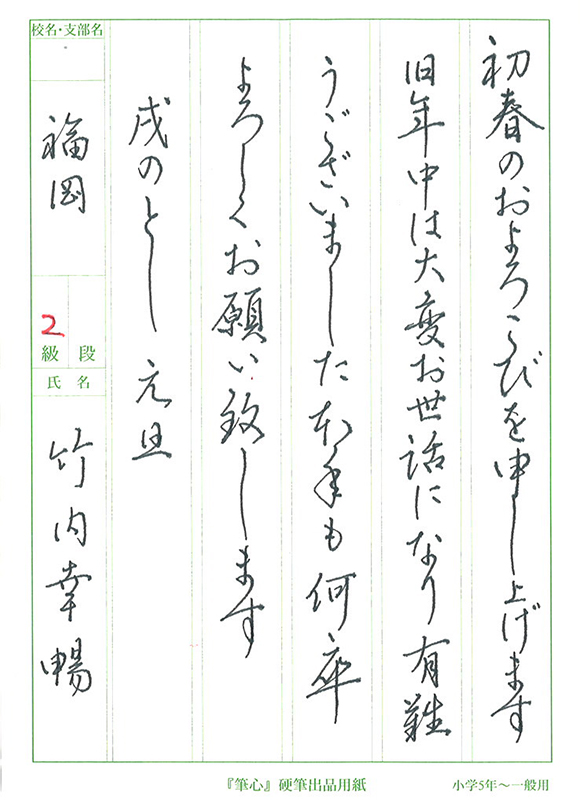 初春のおよろこびを申し上げます
旧年中は大変お世話になり有難
うございました本年も何卒
よろしくお願い致します
戌のとし 元旦
校名・支部名
福岡
2
級 段
氏 名
竹内幸暢
『筆心』硬筆出品用紙
小学5年〜一般用